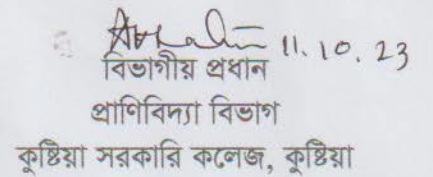 11.10.23
বিভাগীয় প্রধান
প্রাণিবিদ্যা বিভাগ
কুষ্টিয়া সরকারি কলেজ, কুষ্টিয়া